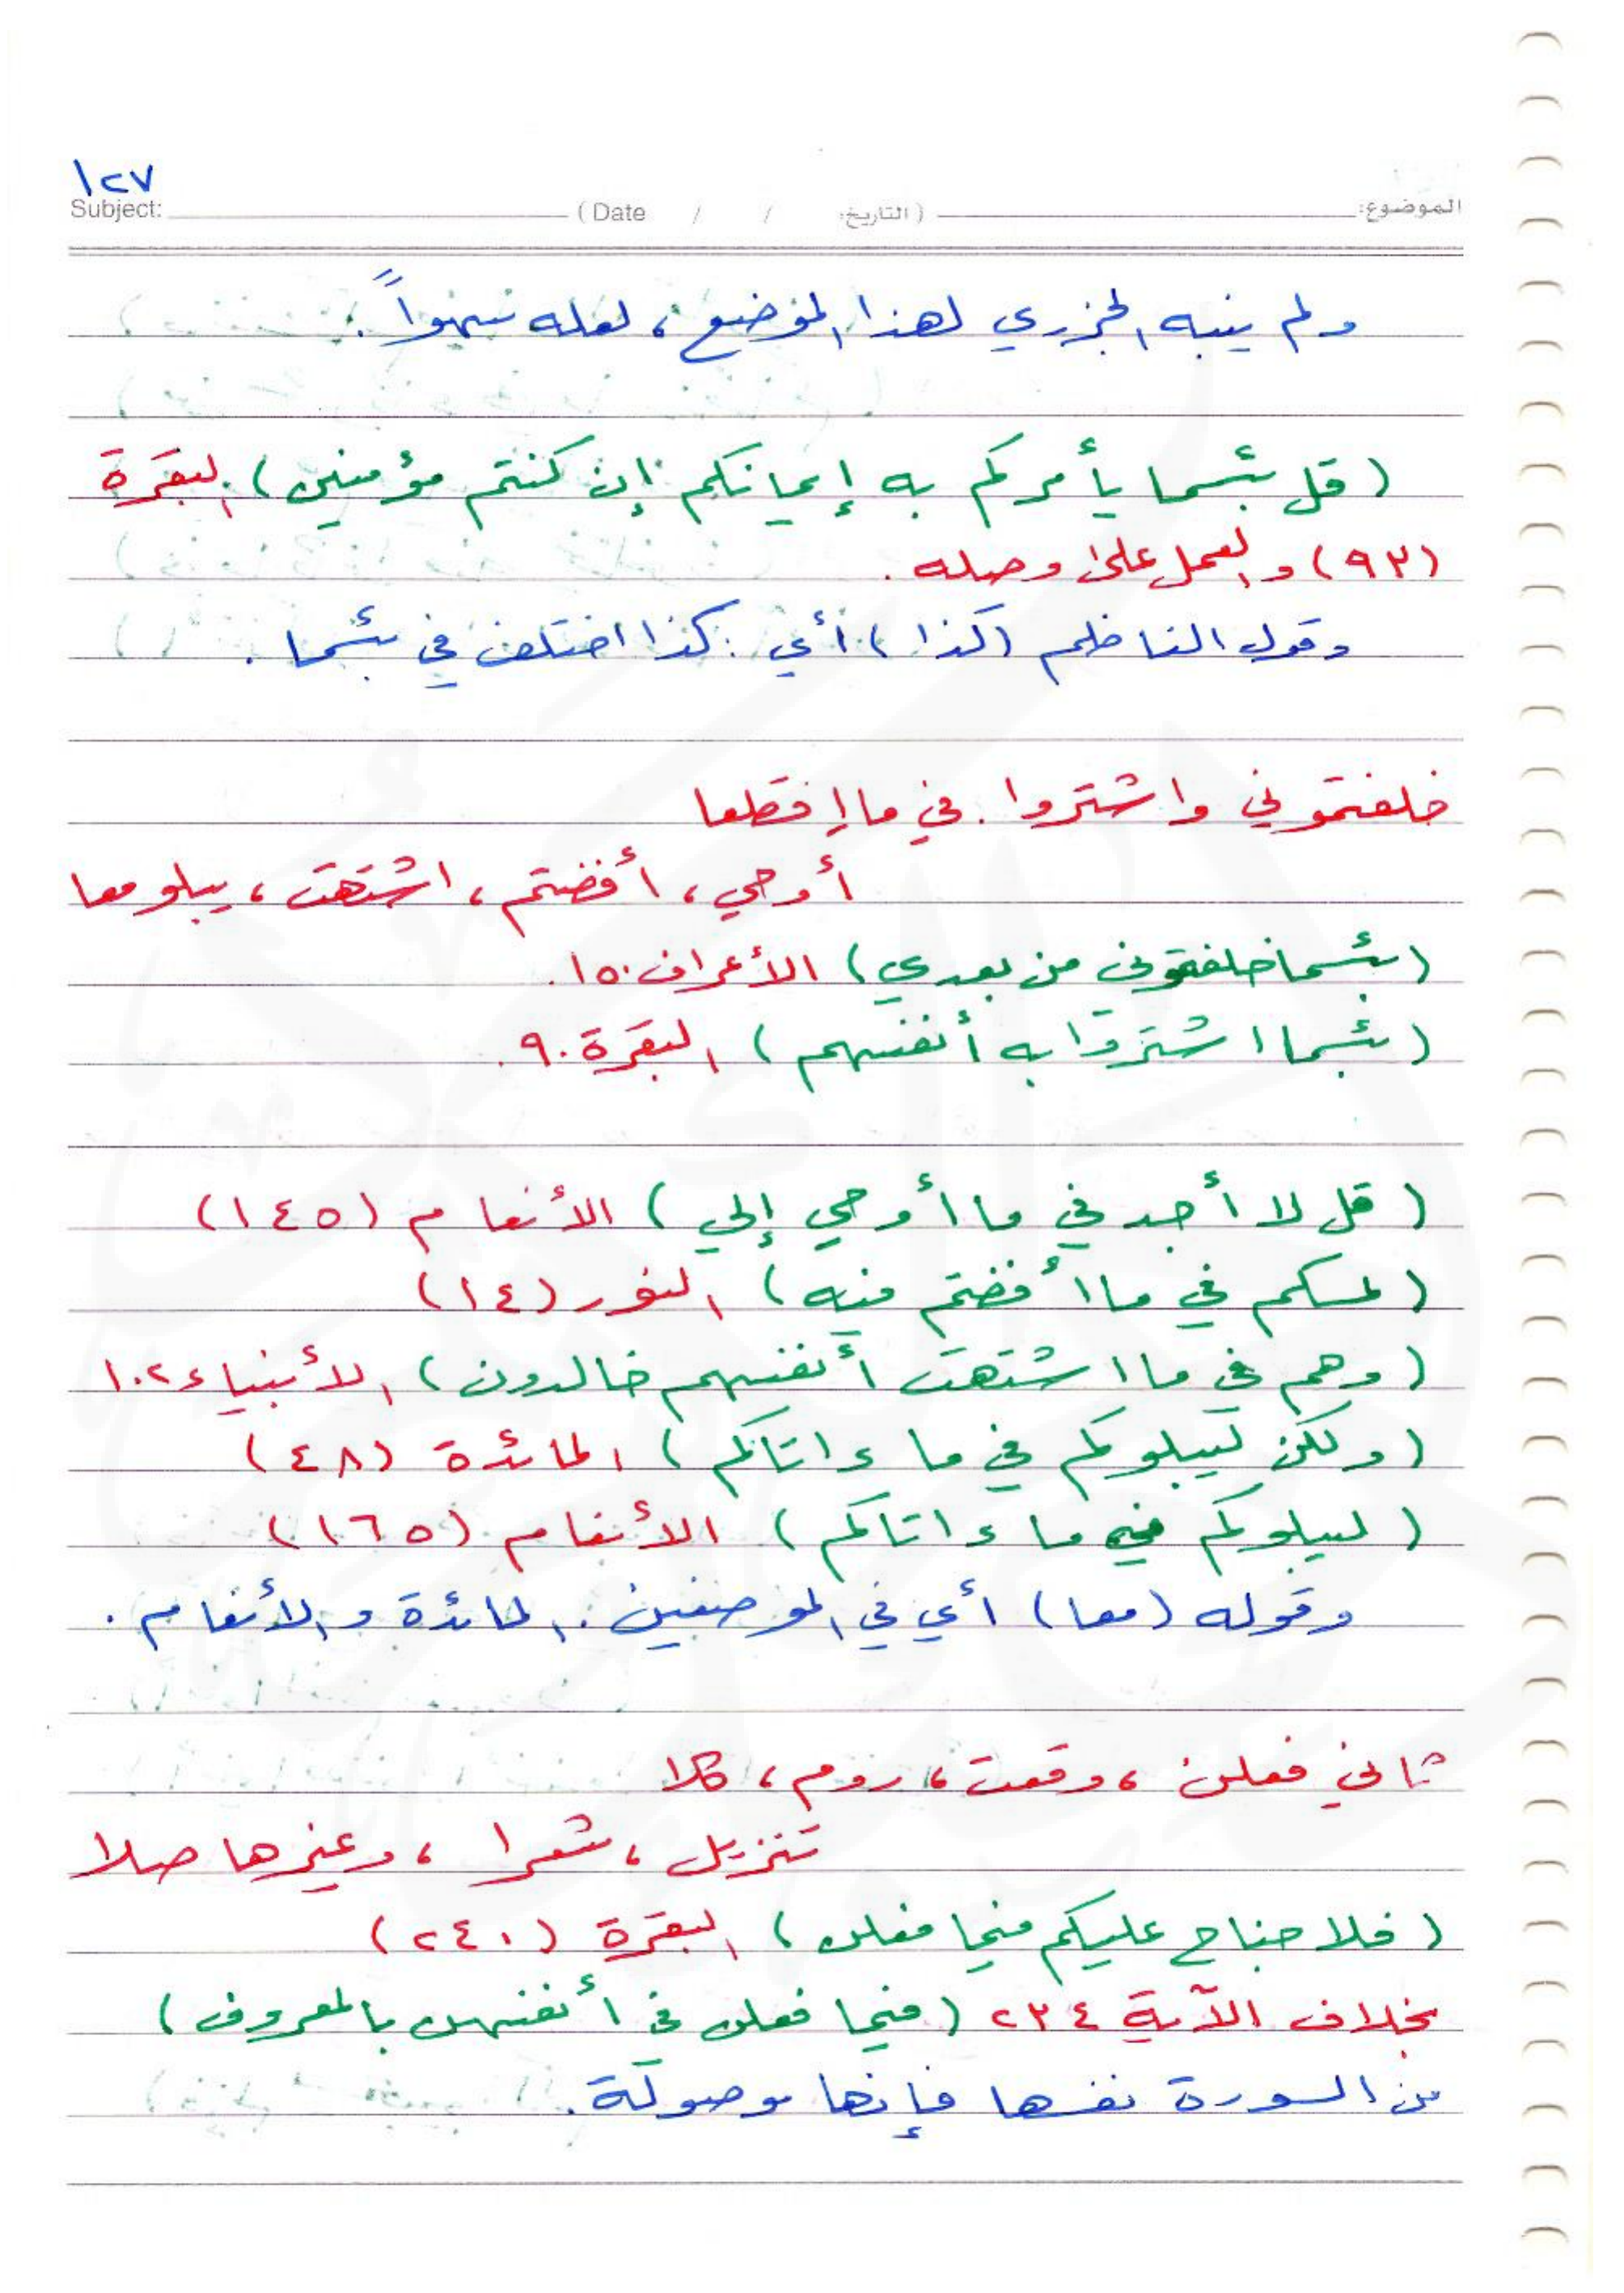 ١٢٧
Subject: (Date / / التاريخ:) الموضوع:
ولم ينبه الجزري لهذا الموضع، لعله سهواً.
(قل بئسما يأمركم به إيمانكم إن كنتم مؤمنين) البقرة
(٩٣) والعمل على وصله.
وقول الناظم (كذا) أي: كذا اختلف في بئسما.
خلفتموني واشتروا. في ما اقطعا
أوحي، أفضتم، اشتهت، يبلو معا
(بئسما خلفتموني من بعدي) الأعراف ١٥٠.
(بئسما اشتروا به أنفسهم) البقرة ٩٠.
(قل لا أجد في ما أوحي إلي) الأنعام (١٤٥)
(لمسكم في ما أفضتم فيه) النور (١٤)
(وهم في ما اشتهت أنفسهم خالدون) الأنبياء ١٠٢
(ولكن ليبلوكم في ما ءاتاكم) المائدة (٤٨)
(ليبلوكم في ما ءاتاكم) الأنعام (١٦٥)
وقوله (معا) أي في الموضعين: المائدة والأنعام.
ثاني فعلن، وقعت، روم، كلا
تنزيل، شعرا، وغيرها صلا
(فلا جناح عليكم فيما فعلن) البقرة (٢٤٠)
بخلاف الآية ٢٣٤ (فيما فعلن في أنفسهن بالمعروف)
من السورة نفسها فإنها موصولة.